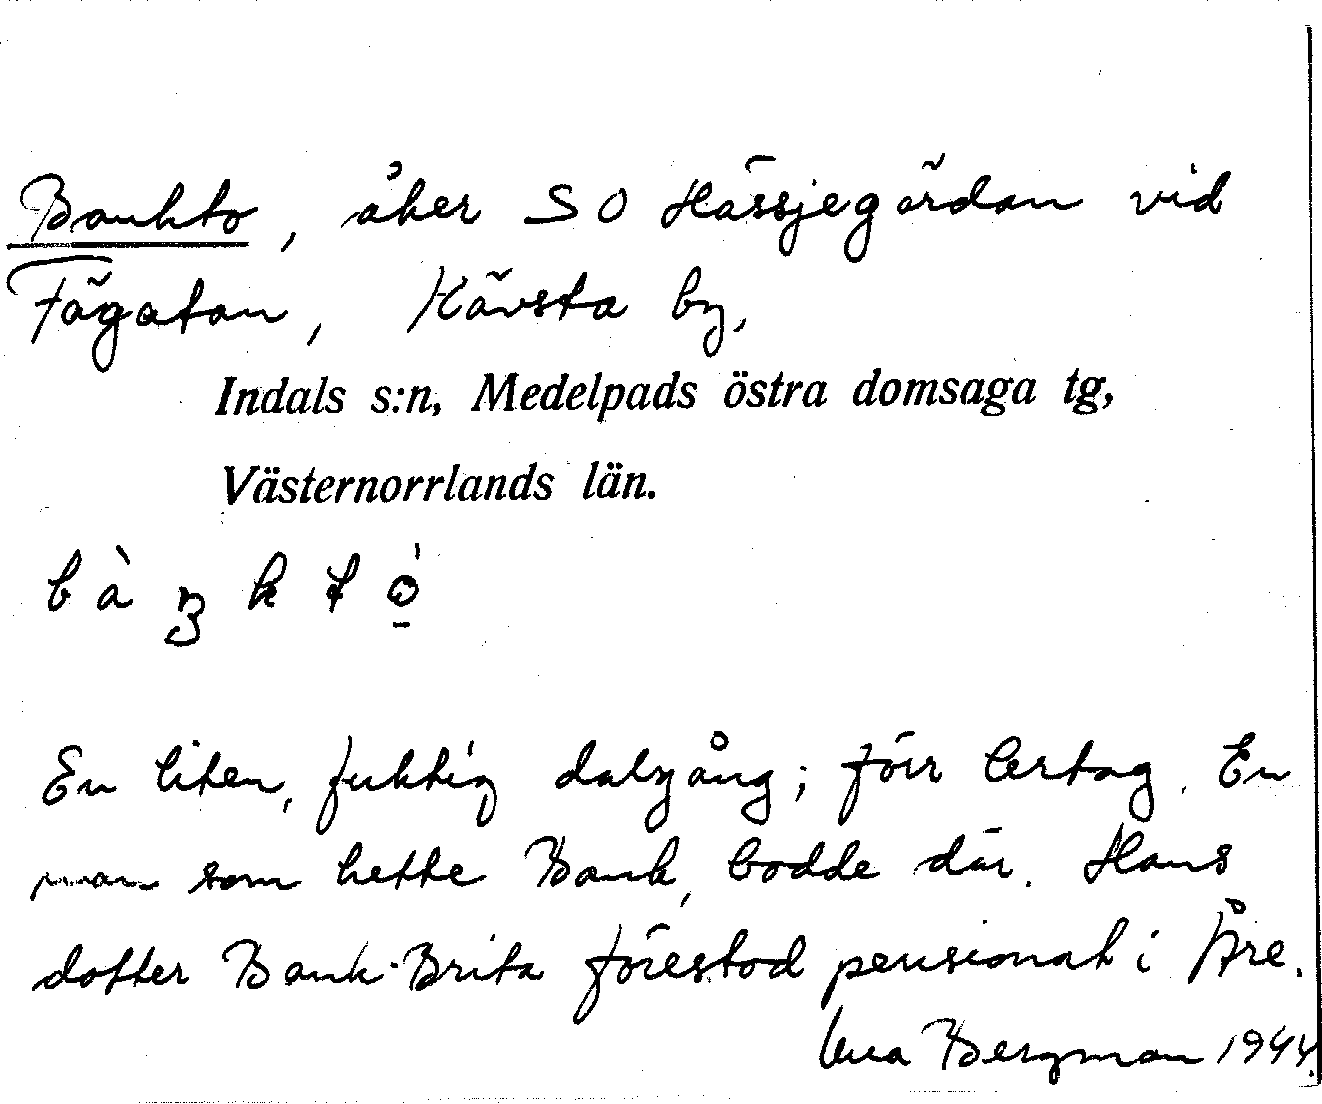 Bankto, åker SO Hässjegårdan vid
Fägatan, Kävsta by,
Indals s:n, Medelpads östra domsaga tg,
Västernorrlands län.
b à ŋ k t ò̱
En liten, fuktig dalgång; förr lertag. En
man som hette Bank, bodde där. Hans
dotter Bank-Brita förestod pensionat i Åre.
Bergman 1944.